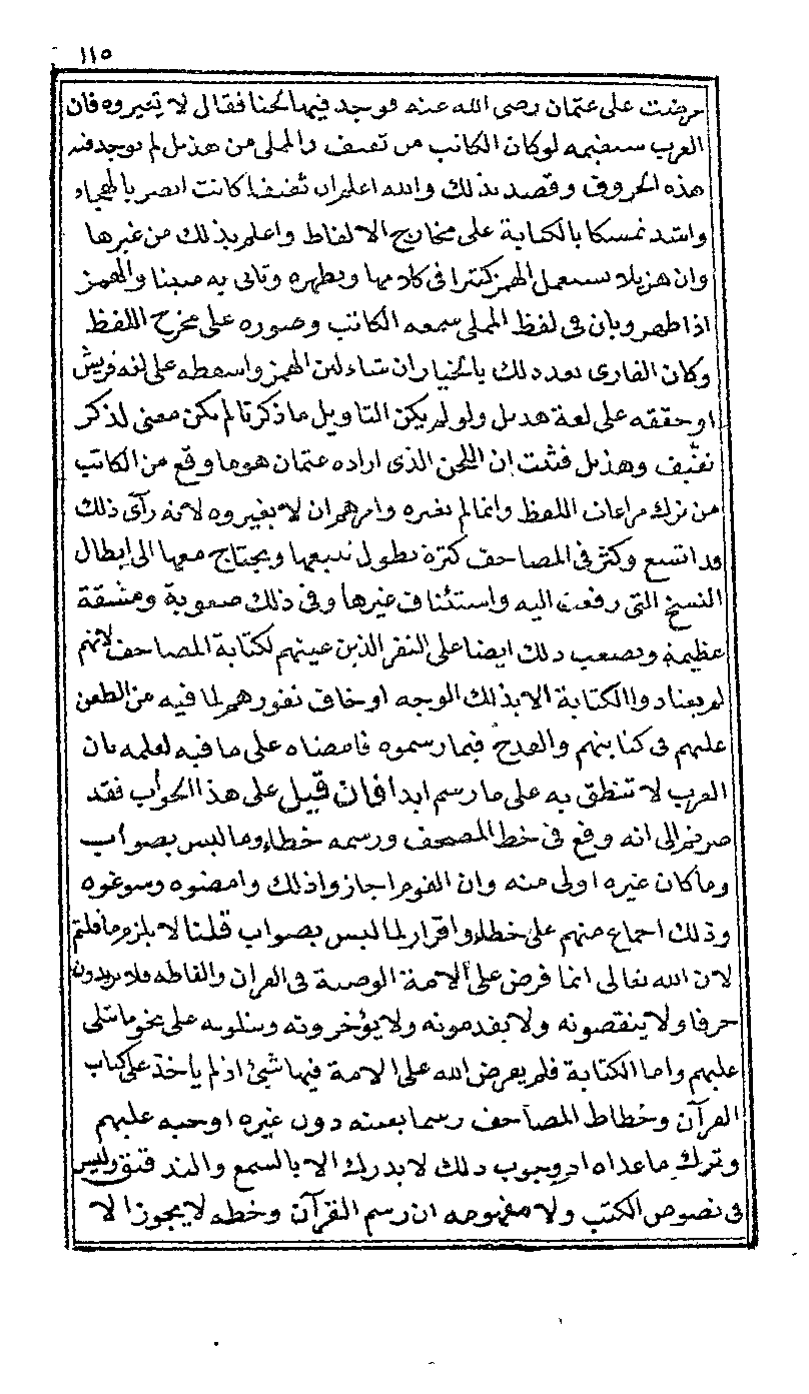 ١١٥
عرضت على عثمان رضى الله عنه فوجد فيها لحنا فقال لا تغيروه فان
العرب ستقيمه لوكان الكاتب من ثقيف والمملى من هذيل لم توجد فيه
هذه الحروف وقصد بذلك والله اعلم ان ثقيفا كانت ابصر بالهجاء
واشد تمسكا بالكتابة على مخارج الالفاظ واعلم بذلك من غيرها
وان هزيلا تستعمل الهمز كثيرا فى كلامها وتظهره وتاتى به مبينا والهمز
اذا ظهر وبان فى لفظ المملى سمعه الكاتب وصوره على مخرج اللفظ
وكان القارى بعد ذلك بالخيار ان شاء لين الهمز واسقطه على لغة قريش
او حققه على لغة هديل ولو لم يكن التاويل ما ذكرنا لم يكن معنى لذكر
ثقيف وهذيل فثبت ان اللحن الذى اراده عثمان هو ما وقع من الكاتب
من ترك مراعات اللفظ وانما لم يغيره وامرهم ان لا يغيروه لانه رآى ذلك
قد اتسع وكثر فى المصاحف كثرة يطول تتبعها ويحتاج معها الى ابطال
النسخ التى رفعت اليه واستئناف غيرها وفى ذلك صعوبة ومشقة
عظيمة ويصعب ذلك ايضا على النفر الذين عينهم لكتابة المصاحف لانهم
لم يعتادوا الكتابة الا بذلك الوجه او خاف نفورهم لما فيه من الطعن
عليهم فى كتابتهم والقدح فيما رسموه فامضاه على ما فيه لعلمه بان
العرب لا تنطق به على ما رسم ابدا فان قيل على هذا الجواب فقد
صرتم الى انه وقع فى خط المصحف ورسمه خطاء وما ليس بصواب
وما كان غيره اولى منه وان القوم اجازوا ذلك وامضوه وسوغوه
وذلك اجماع منهم على خطاء واقرار لما ليس بصواب قلنا لا يلزم ما قلتم
لان الله تعالى انما فرض على الامة الوصية فى القران والفاظه فلا يزيدون
حرفا ولا ينقصونه ولا يقدمونه ولا يؤخرونه ويتلونه على نحو ما يتلى
عليهم واما الكتابة فلم يفرض الله على الامة فيها شيئ اذ لم ياخذ على كتاب
القرآن وخطاط المصاحف رسما بعينه دون غيره اوجبه عليهم
وترك ما عداه اذ وجوب ذلك لا يدرك الا بالسمع والتوقيف وليس
فى نصوص الكتب ولا مفهومه ان رسم القرآن وخطه لا يجوز الا